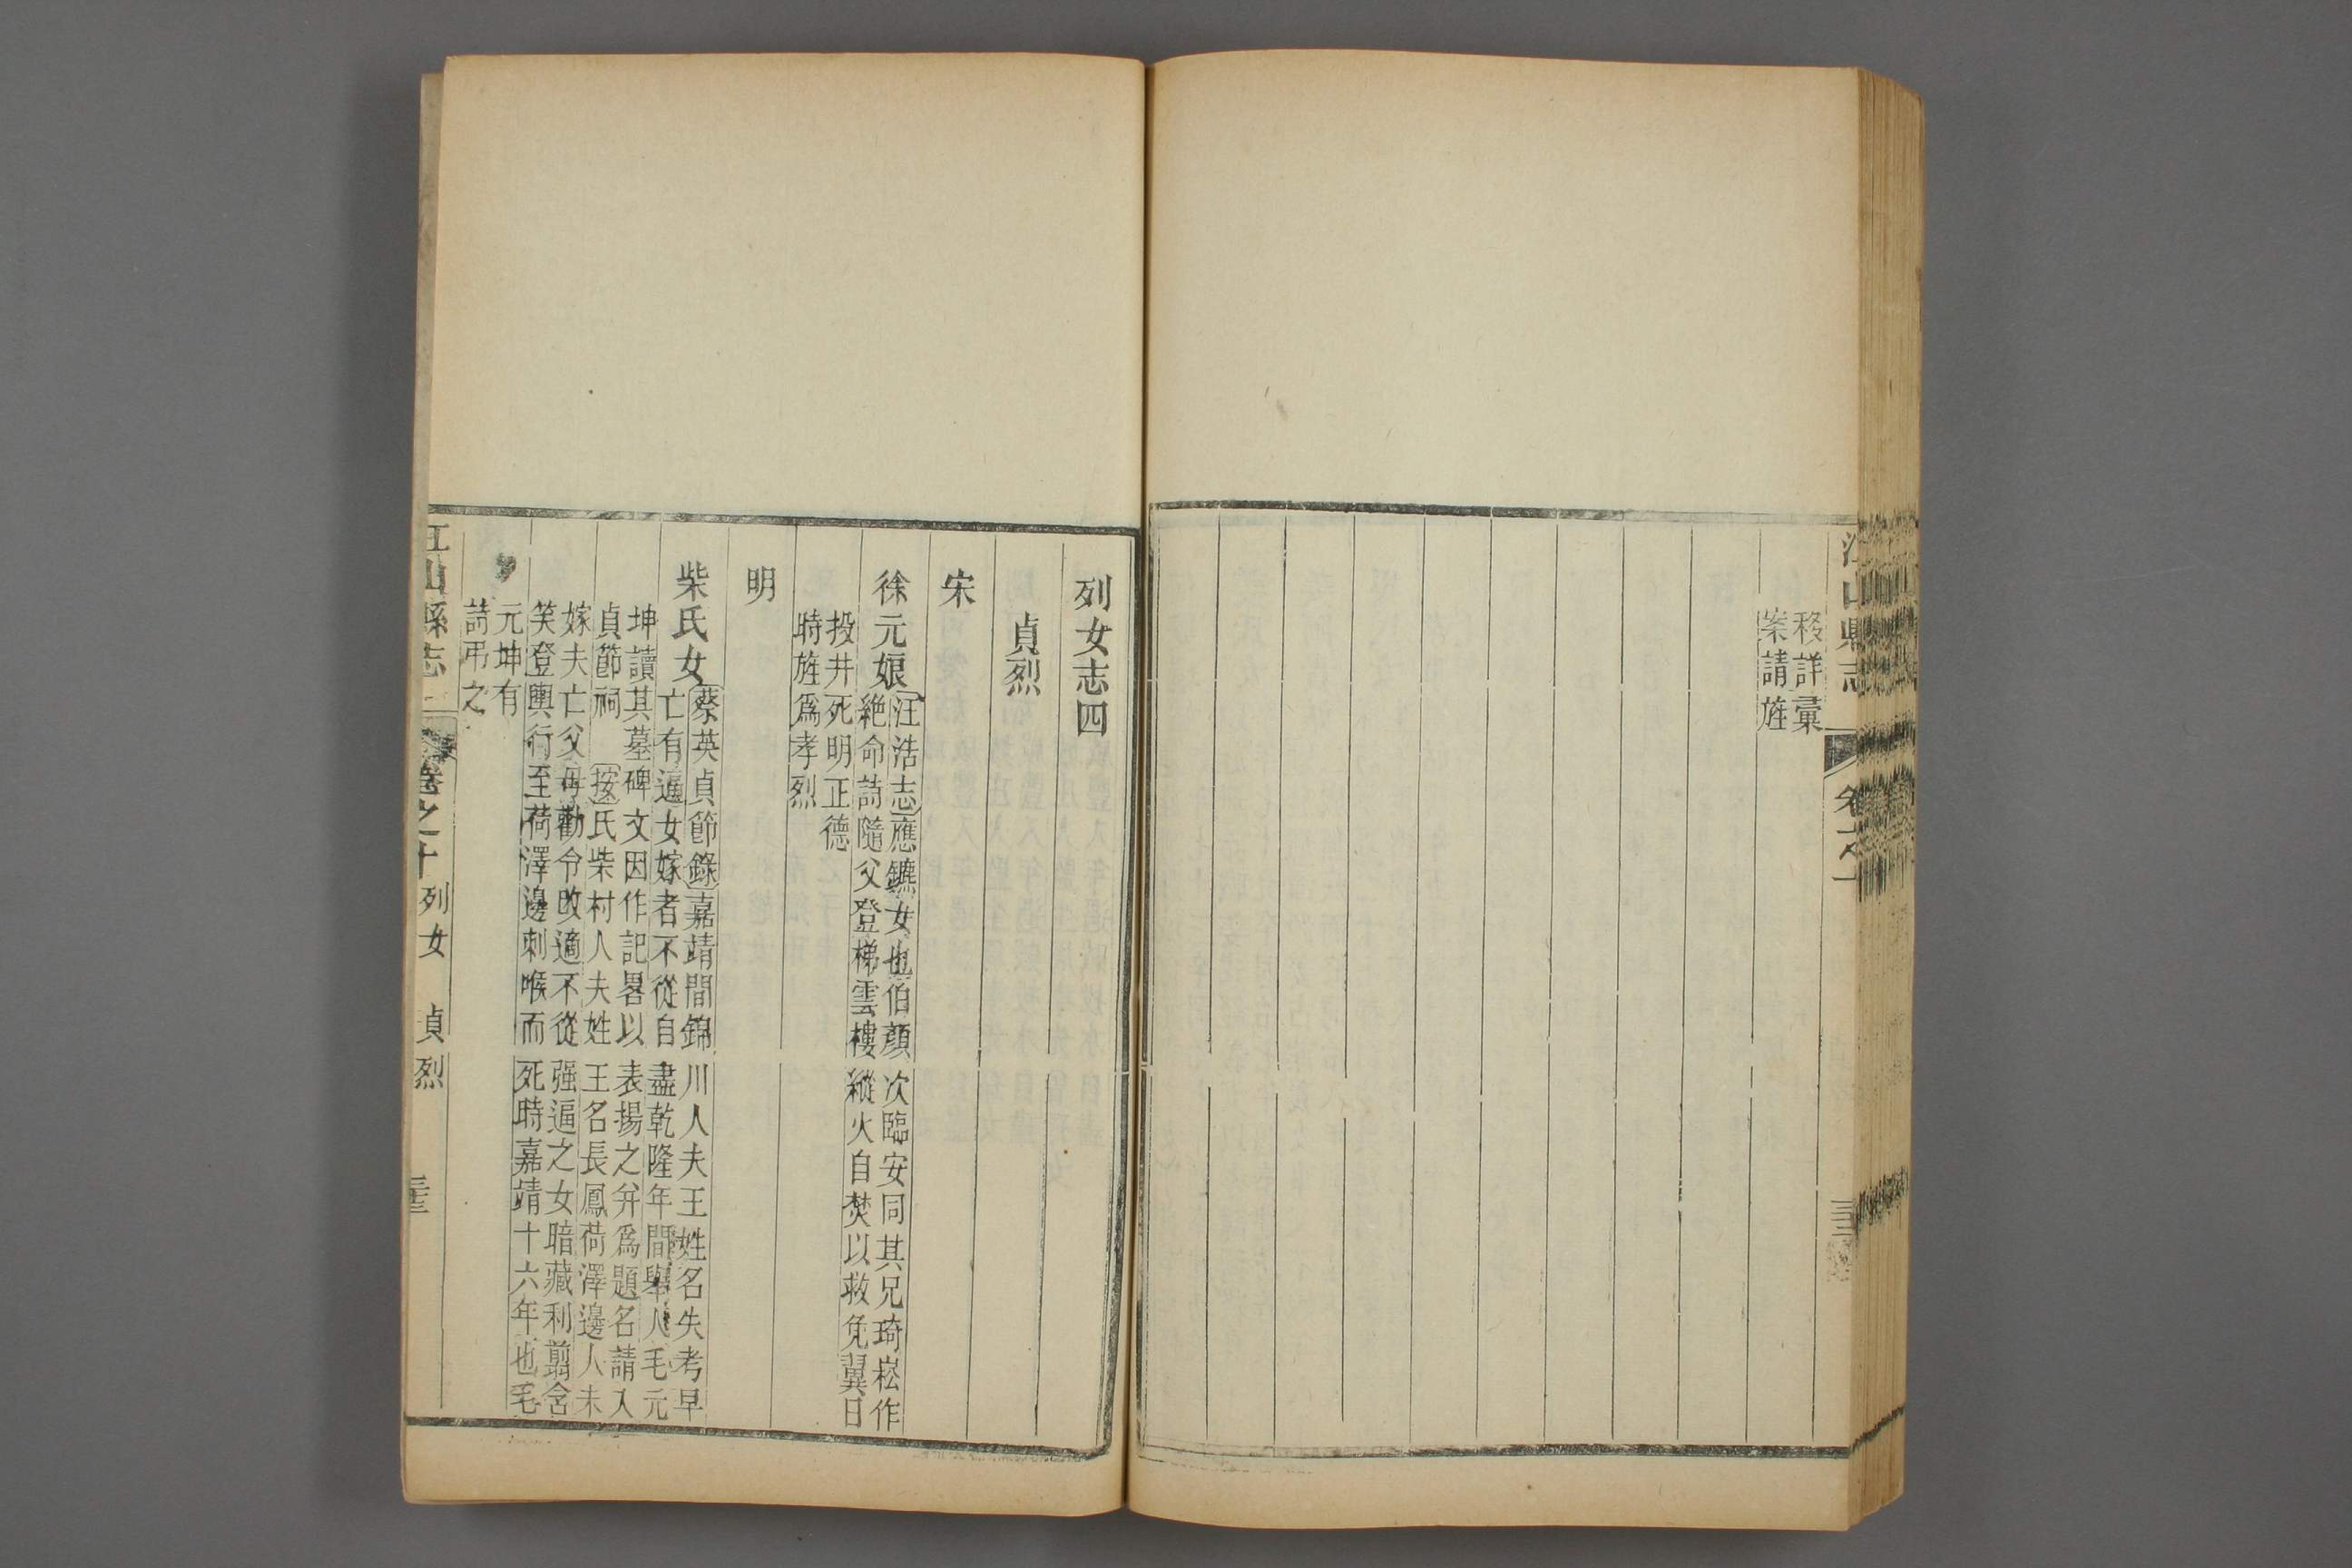 江山縣志
移詳彙
案請旌
列女志四
貞烈
宋
徐元娘
汪浩志應鑣女也伯顏次臨安同其兄琦崧作
絶命詩隨父登梯雲樓縱火自焚以救免翼日
投井死明正德
時旌爲孝烈
明
柴氏女
蔡英貞節錄嘉靖間錦川人夫王姓名失考早
亡有逼女嫁者不從自盡乾隆年間舉人毛元
坤讀其墓碑文因作記畧以表揚之并爲題名請入
貞節祠 按氏柴村人夫姓王名長鳳荷澤邊人未
嫁夫亡父母勸令改適不從强逼之女暗藏利翦含
笑登輿行至荷澤邊刺喉而死時嘉靖十六年也毛
元坤有
詩弔之
江山縣志 卷之十 列女 貞烈